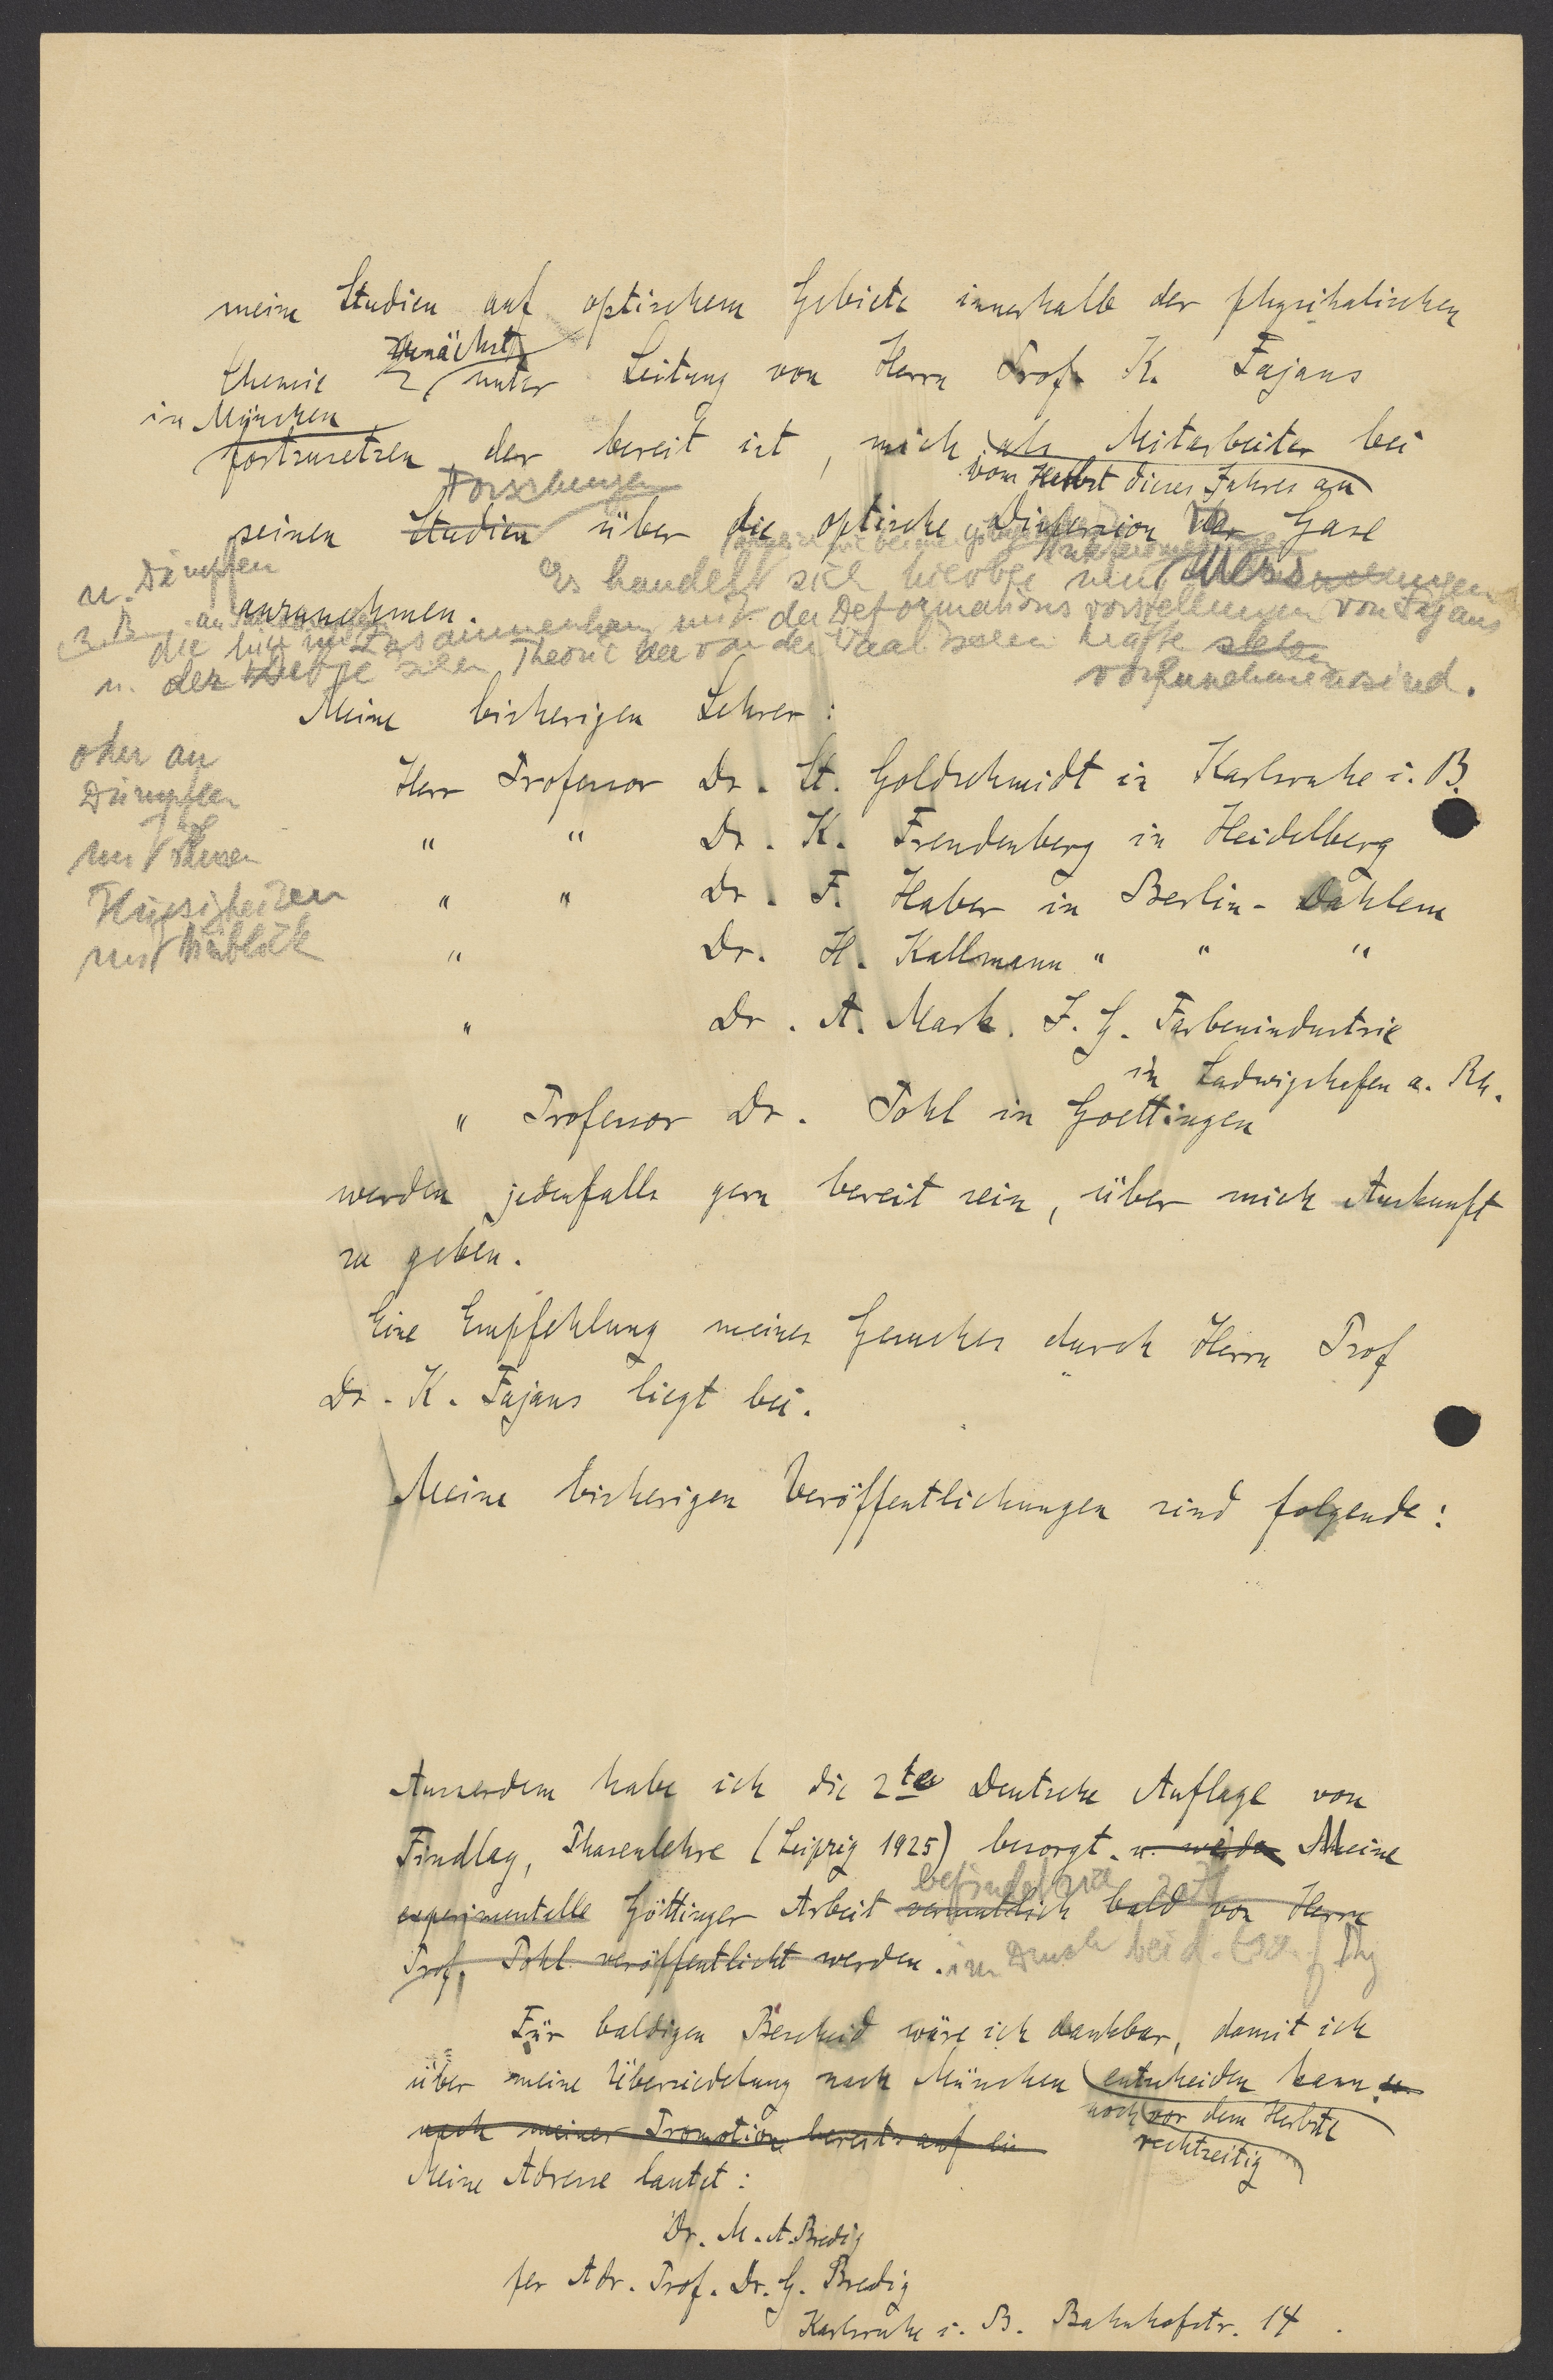 meine Studien auf optischem Gebiete innerhalb der physikalischen
zunächst
Chemie unter Leitung von Herrn Prof. K. Fajans
in München
fortzusetzen, der bereit ist, mich als Mitarbeiter bei
vom Herbst dieses Jahres an
Forschungen
seinen Studien über die optische Dispersion der Gase
u. Dämpfen
Es handelt sich hierbei um
anzunehmen.
z. B. an
die hier im Zusammenhang mit der Deformationsvorstellungen von Fajans
u. der Debye'schen Theorie der van der Waals'schen Kräfte stehen
vorzunehmen sind.
Meine bisherigen Lehrer:
oder an
Dämpfen
und
Flüssigkeiten
mit Hinblick
Herr Professor Dr. St. Goldschmidt in Karlsruhe i. B.
" " Dr. K. Freudenberg in Heidelberg
" " Dr. F. Haber in Berlin-Dahlem
" Dr. H. Kallmann " " "
" Dr. A. Mark. I. G. Farbenindustrie
in Ludwigshafen a. Rh.
" Professor Dr. Pohl in Goettingen
werden jedenfalls gern bereit sein, über mich Auskunft
zu geben.
Eine Empfehlung meines Gesuches durch Herrn Prof
Dr. K. Fajans liegt bei.
Meine bisherigen Veröffentlichungen sind folgende:
Ausserdem habe ich die 2te Deutsche Auflage von
Findlay, Phasenlehre (Leipzig 1925) besorgt. u. werde Meine
befindet sich zzt
experimentelle Göttinger Arbeit vermutlich bald von Herrn
Prof. Pohl veröffentlicht werden. im Druck bei d.
Für baldigen Bescheid wäre ich dankbar, damit ich
über meine Übersiedelung nach München entscheiden kann u.
noch vor dem Herbste
rechtzeitig
nach meiner Promotion bereits auf
Meine Adresse lautet:
Dr. M. A. Bredig
per Adr. Prof. Dr. G. Bredig
Karlsruhe i. B. Bahnhofstr. 14.